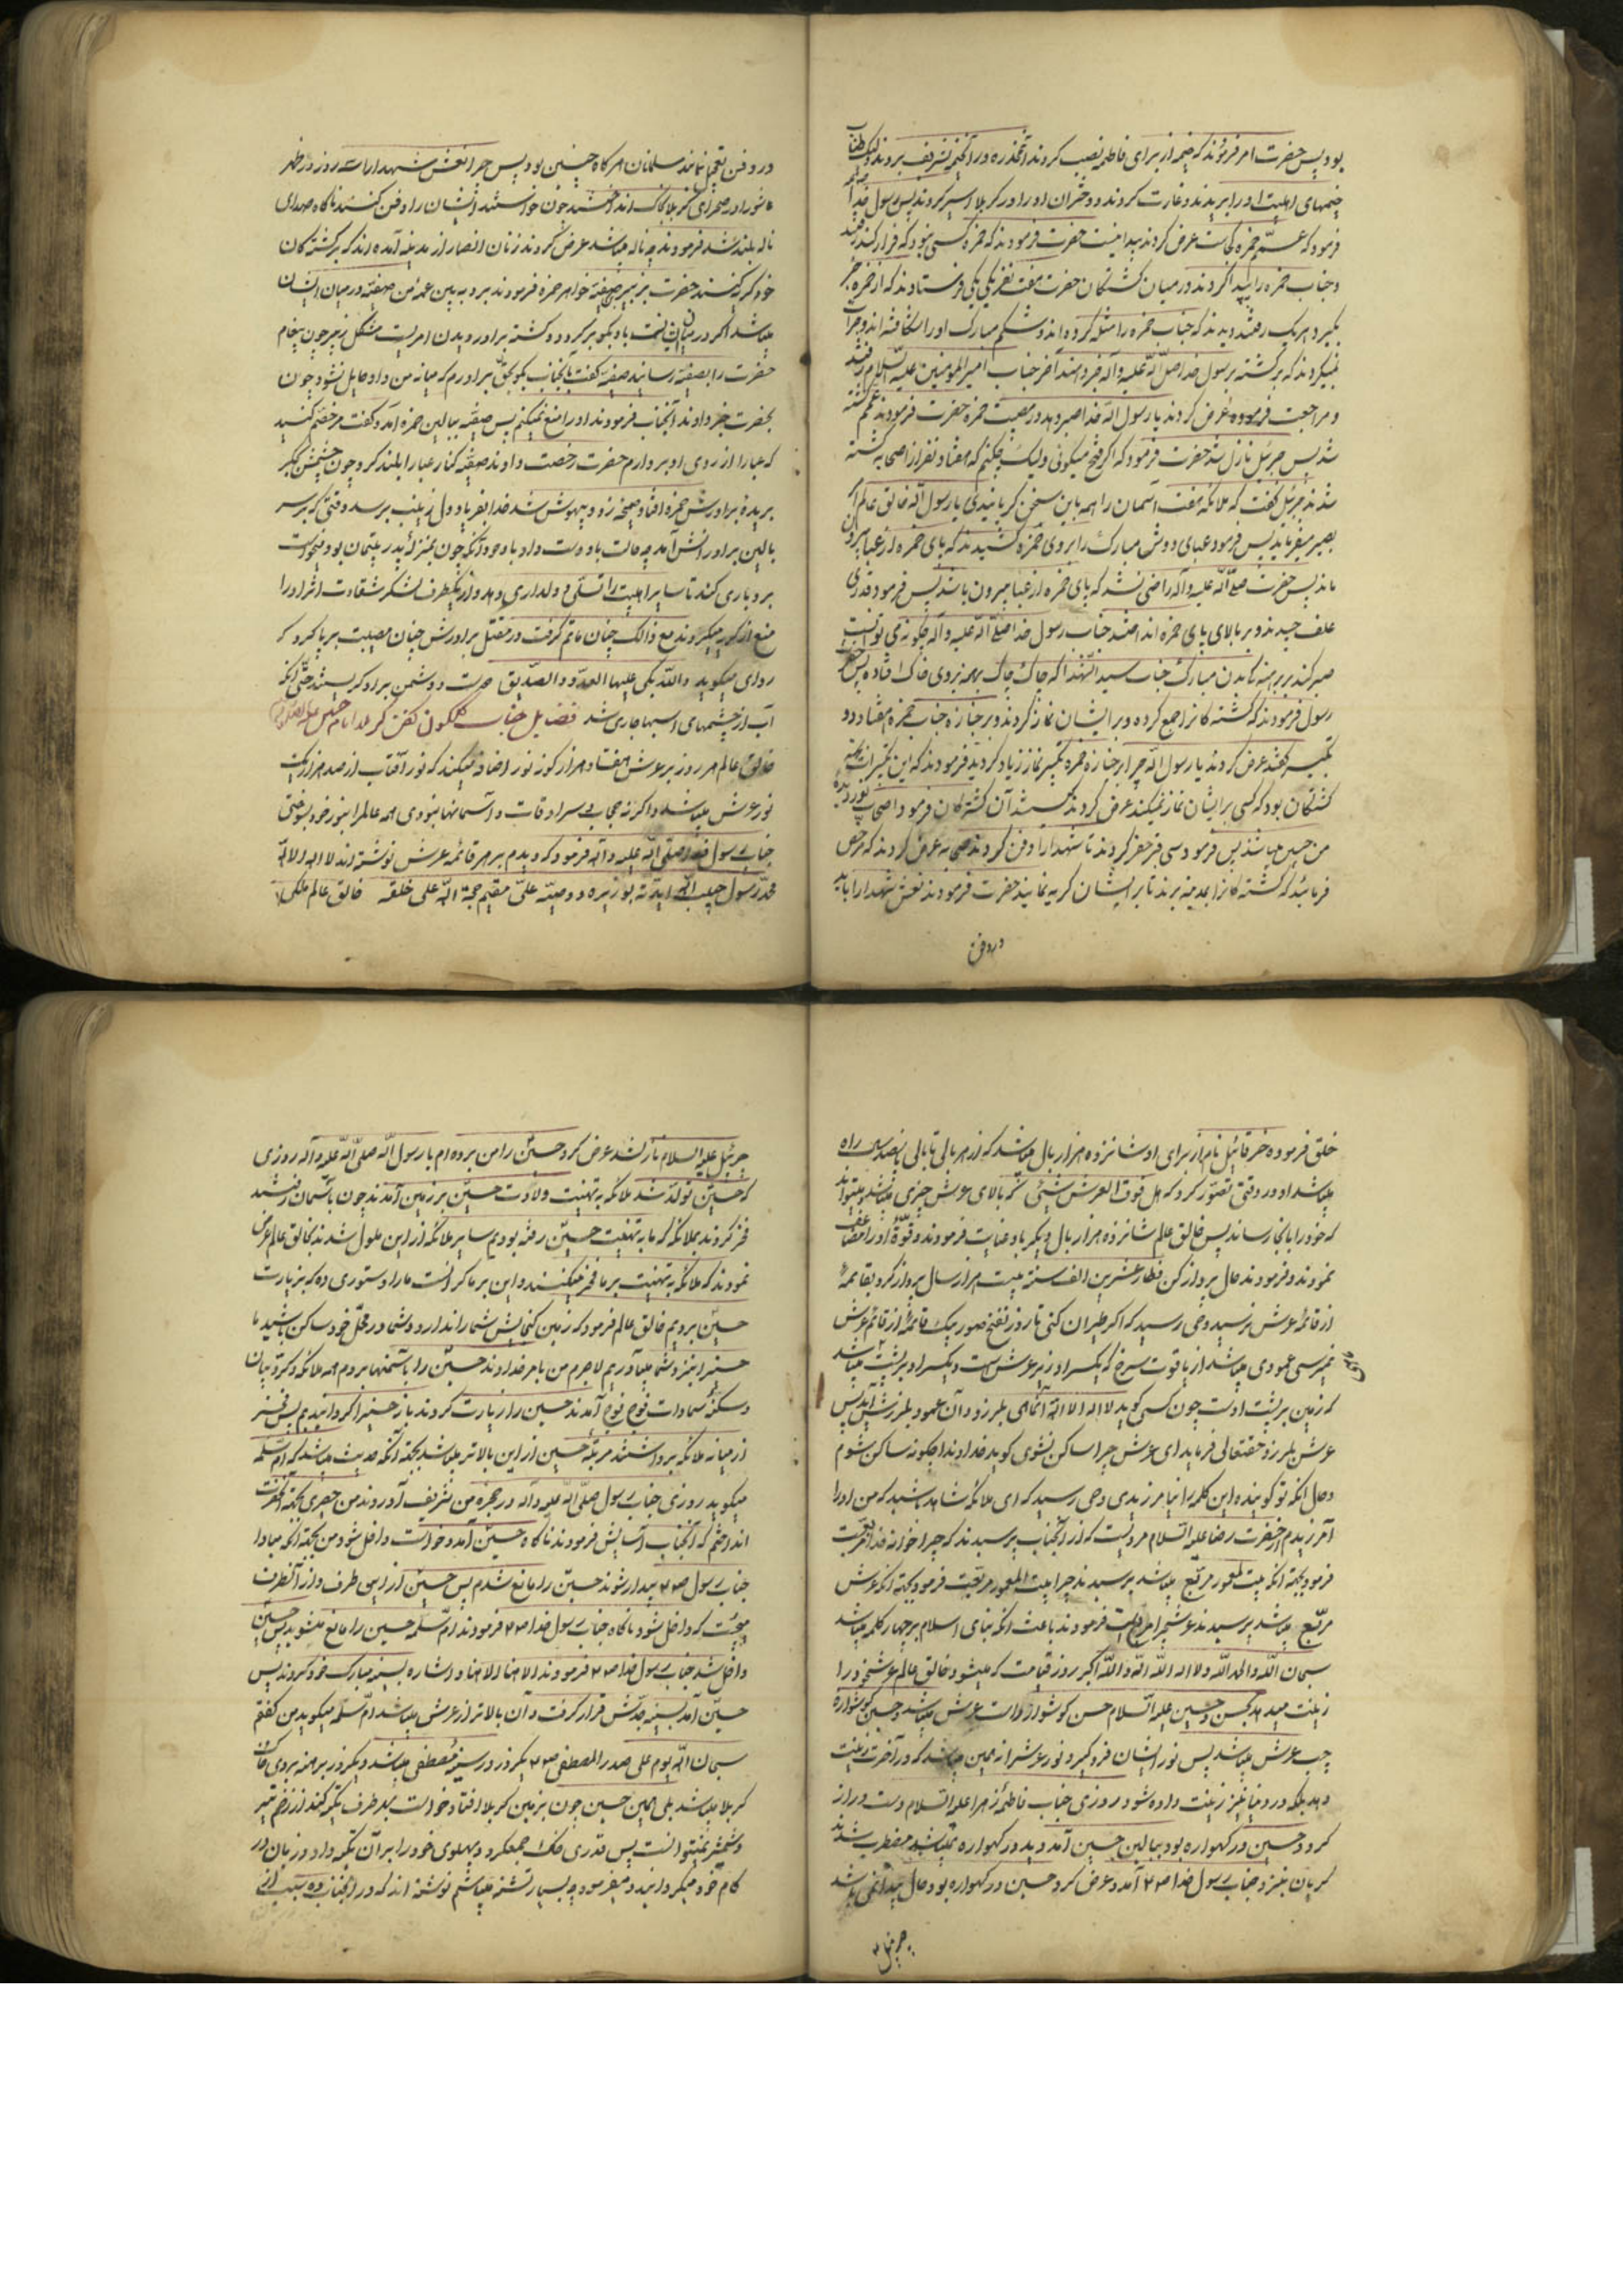 بود پس حضرت امر فرمودند که خیمه از برای فاطمه نصیب کردند آنمخدره در آنخیمه تشریف بردند لیک طناب
خیمهای اهلبیت او را بریدند و غارت کردند و دختران او را در کربلا اسیر کردند پس رسول خدا صلعم
فرمود که عمّم حمزه کجاست عرض کردند پیدا نیست حضرت فرمودند که حمزه کسی نبود که فرار کند رفتند
و جناب حمزه را پیدا کردند در میان کشتگان حضرت هفت نفر یکی یکی فرستادند که از حمزه خبر
بگیرد هر یک رفتند دیدند که جناب حمزه را مثله کرده اند و شکم مبارک او را شکافته اند و جرأت
نمیکردند که برگشته برسول خدا صلی الله علیه و آله خبر دهند آخر جناب امیر المومنین علیه السلام رفتند
و مراجعت فرموده عرض کردند یا رسول الله خدا صبر دهد در مصیبت حمزه حضرت فرمودند عمّم کشته
شد پس جبرئیل نازل شد حضرت فرمود که اگر فتح میگوئی ولیک چکنم که هفتاد نفر از اصحابم کشته
شدند جبرئیل گفت که ملائکه هفت آسمان را همه باین سخن گریانیدی یا رسول الله خالق عالم امر
بصبر میفرماید پس فرمود عبای دوش مبارک را بروی حمزه کشیدند که پای حمزه از عبا بیرون
ماند پس حضرت صلی الله علیه و آله راضی نشد که پای حمزه از عبا بیرون باشد پس فرمود قدری
علف چیدند و بر بالای پای حمزه انداختند جناب رسول خدا صلی الله علیه و آله چگونه می توانست
صبر کند بر برهنه گی بدن مبارک جناب سید الشهدا که چاک چاک برهنه بروی خاک افتاده پس حضرت
رسول فرمودند که کشته گانرا جمع کرده و بر ایشان نماز کردند و بر جنازه جناب حمزه هفتاد و دو
تکبیر گفتند عرض کردند یا رسول الله چرا بر جنازه حمزه تکبیر نماز زیاد کردید فرمودند که این تکبیرات
کشتگان بود که کسی بر ایشان نماز نمیکند عرض کردند کیستند آن کشته گان فرمود اصحاب نور دیده
من حسین میباشند پس فرمود سی قبر حفر کردند تا شهدا را دفن کردند صحابه عرض کردند که مرخص
فرمائید که کشته گانرا بمدینه برند تا بر ایشان گریه نمایند حضرت فرمودند نعش شهدا را باید
در دفن
در دفن تعجیل نمایند مسلمانان هر گاه چنین بود پس چرا نعش شهدا را سه روز در ظهر
عاشورا در صحرای کربلا بخاک انداختند چون خواستند ایشان را دفن کنند ناگاه صدای
ناله بلند شد فرمودند چه ناله میباشد عرض کردند زنان انصار از مدینه آمده اند که بر کشته گان
خود گریه کنند حضرت بزبیر صفیه خواهر حمزه فرمودند برو ببین عمه من صفیه در میان ایشان
میباشد اگر در میان ایشان است باو بگو برگردد کشته برادر دیدن امریست مشکل زبیر چون پیغام
حضرت را بصفیه رسانید صفیه گفت بآنجناب بگو بحق برادرم که میانه من و او حایل نشود چون
بحضرت خبر دادند آنجناب فرمودند او را منع نمیکنم پس صفیه ببالین حمزه آمد و گفت مرخصم کنید
که عبا را از روی او بردارم حضرت رخصت دادند صفیه کنار عبا را بلند کرد چون چشمش بجگر
بریده برادرش حمزه افتاد صیحه زد و بیهوش شد خدا بفریاد دل زینب برسد وقتی که بر سر
بالین برادرانش آمد چه حالت باو دست داد با وجود آنکه چون بمنزله پدر یتیمان بود میخواست
بردباری کند تا سایر اهلبیت را تسلی و دلداری دهد و از یکطرف لشکر شقاوت اثر او را
منع از گریه میکردند مع ذالک چنان ماتم گرفت در مقتل برادرش چنان مصیبت برپا کرد که
راوی میگوید والله تبکی علیها العدو و الصدیق دوست و دشمن بر او گریستند حتی آنکه
آب از چشمهای اسبها جاری شد فضایل جناب گلگون کفن کربلا امام حسین علیه السلام
خالق عالم هر روز بر عرش هفتاد هزار گونه نور اضافه میکند که نور آفتاب از صد هزار یک
نور عرش میباشد و اگر نه حجابهای سرادقات و آسمانها نبودی همه عالم را بنور خود بسوختی
جناب رسول خدا صلی الله علیه و آله فرمود که دیدم بر هر قائمه عرش نوشته اند لا اله الا الله
محمد رسول حبیب الله ایدته بوزیره و وصیه علی مقیم حجة الله علی خلقه خالق عالم ملکی
خلق فرموده خرقائیل نام از برای او شانزده هزار بال میباشد که از هر بالی تا بالی پانصد ساله راه
میباشد او در وقتی تصور کرد که هل فوق العرش شیئ که بالای عرش چیزی میباشد میتواند
که خود را بآنجا رساند پس خالق عالم شانزده هزار بال دیگر باو عنایت فرمودند و قوّة او را مضاعف
نمودند و فرمودند حال پرواز کن فطار عشرین الف سنة بیست هزار سال پرواز کرد بقائمه
از قائمه عرش نرسید وحی رسید که اگر طیران کنی تا روز نفخ صور بیک قائمه از قائم عرش
نمیرسی عمودی میباشد از یاقوت سرخ که یکسر او زیر عرش است و یکسر او بر پشت ماهی میباشد
که زمین بر پشت اوست چون کسی گوید لا اله الا الله آنماهی بلرزد و آن عمود بلرزش آید پس
عرش بلرزد حقتعالی فرماید ای عرش چرا ساکن نشوی گوید خداوندا چگونه ساکن شوم
و حال آنکه تو گوینده این کلمه را نیامرزیدی وحی رسید که ای ملائکه شاهد باشید که من او را
آمرزیدم از حضرت رضا علیه السلام مرویست که از آنجناب پرسیدند که چرا خوانه خدا مربع است
فرمود بجهة آنکه بیت المعمور مربع میباشد پرسیدند چرا بیت المعمور مربعست فرمود بجهة آنکه عرش
مربع میباشد پرسیدند عرش چرا مربع است فرمودند باعث آنکه بنای اسلام بر چهار کلمه میباشد
سبحان الله والحمد لله ولا اله الا الله والله اکبر روز قیامت که میشود خالق عالم عرش خود را
زینت میدهد بحسن و حسین علیه السلام حسن گوشواره راست عرش میباشد و حسین گوشواره
چپ عرش میباشد پس نور ایشان فرو گیرد نور عرش را نه همین میباشد که در آخرت زینت
دهد بلکه در دنیا نیز زینت داده شود روزی جناب فاطمه زهرا علیه السلام دست دراز
کرد و حسین در گهواره بود ببالین حسین آمد دید در گهواره نمیباشد مضطرب شدند
گریان بنزد جناب رسول خدا ص آمد و عرض کرد حسین در گهواره بود حال پیدا نمی باشد
جبرئیل
جبرئیل علیه السلام نازل شد عرض کرد حسین را من برده ام یا رسول الله صلی الله علیه و آله روزی
که حسین تولد شد ملائکه به تهنیت ولادت حسین بر زمین آمدند چون بآسمان رفتند
فخر کردند بملائکه که ما به تهنیت حسین رفته بودیم سایر ملائکه از این ملول شدند بخالق عالم عرض
نمودند که ملائکه به تهنیت بر ما فخر میکنند و این بر ما گرانست ما را دستوری ده که بزیارت
حسین برویم خالق عالم فرمود که زمین گنجایش شما را ندارد و شما در محل خود ساکن باشید ما
حسین را بنزد شما میآوریم لاجرم من بامر خداوند حسین را بآسمانها بردم همه ملائکه و کروبیان
و سکنه سماوات فوج فوج آمدند حسین را زیارت کردند باز حسین را گردانیدم پس قدر
از میانه ملائکه برداشتند مرتبه حسین از این بالاتر میباشد بجهة آنکه حدیث میباشد که ام سلمه
میگوید روزی جناب رسول صلی الله علیه و آله در حجره من تشریف آوردند من حصیری بجهة آنحضرت
انداختم که آنجناب آسایش فرمودند ناگاه حسین آمد و خواست داخل شود من بجهة آنکه مبادا
جناب رسول ص بیدار شوند حسین را مانع شدم پس حسین از این طرف و از آنطرف
میجست که داخل شود ناگاه جناب رسول خدا ص فرمودند ام سلمه حسین را مانع مشو پس حسین
داخل شد جناب رسول خدا ص فرمودند الاهنا الاهنا و اشاره بسینه مبارک خود کردند پس
حسین آمد بسینه جدش قرار گرفت و آن بالاتر از عرش میباشد ام سلمه میگوید من گفتم
سبحان الله یوم علی صدر المصطفی ص یکروز در سینه مصطفی میباشد و یکروز برهنه بروی خاک
کربلا میباشد بلی همین حسین چون بزمین کربلا افتاد خواست بهر طرف تکیه کند از زخم تیر
و شمشیر نمیتوانست پس قدری خاک جمعکرد و پهلوی خود را بر آن تکیه داد و زبان در
کام خود میگردانید و میفرمود چه بسیار تشنه میباشم نوشته اند که در آنجناب ده سبب از